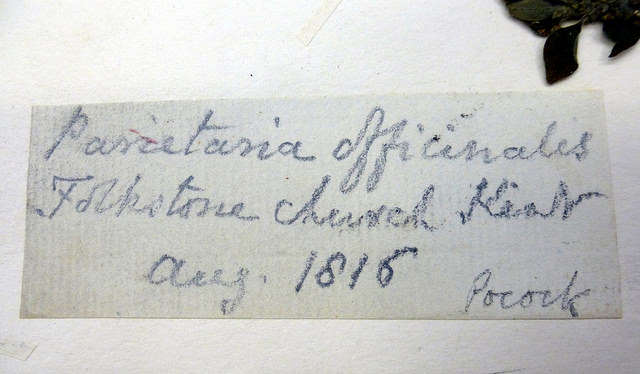 Parietaria officinales
Folkstone church Kent
Aug. 1816
Pocock